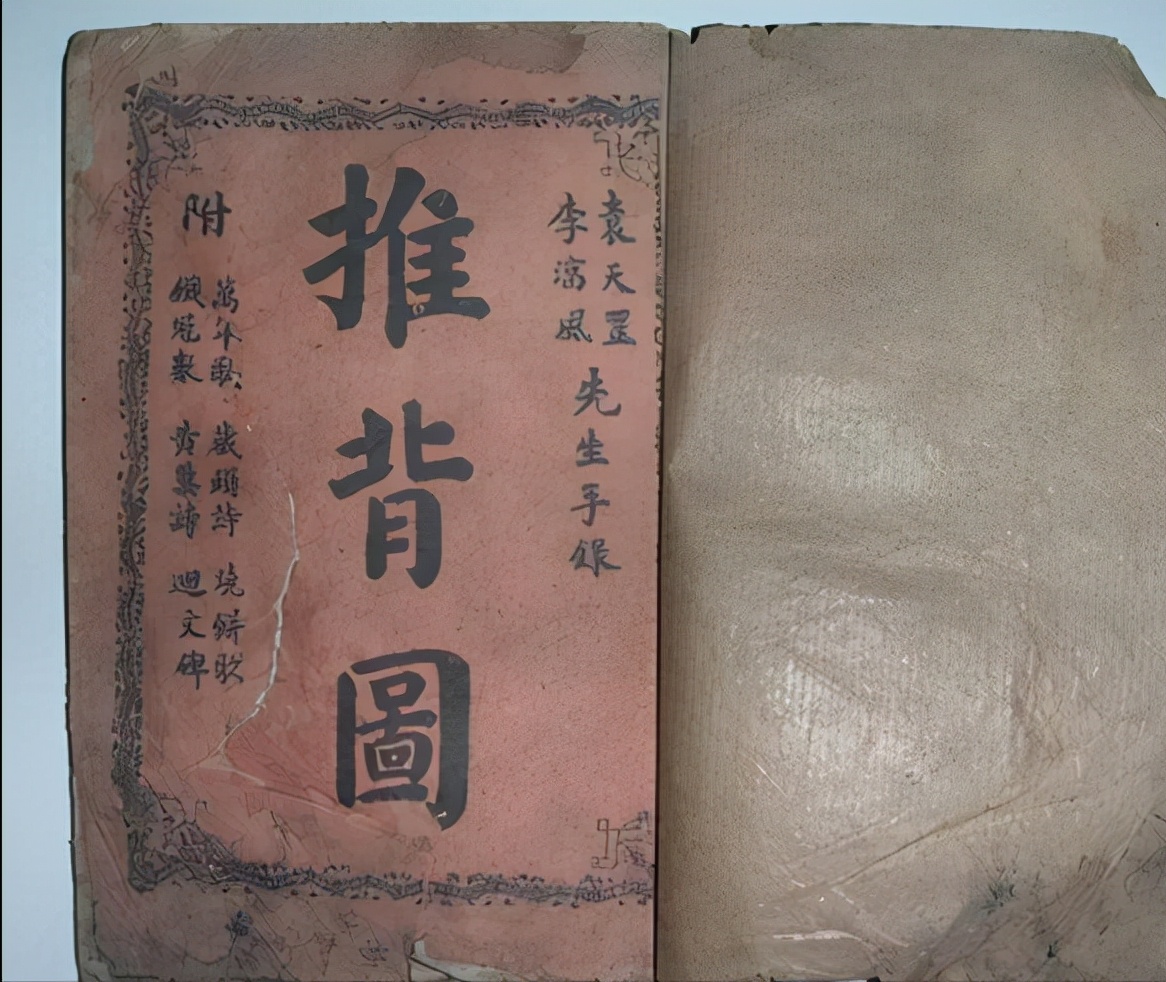 袁天罡
李淳風
先生手
推背圖
附
萬年歌 藏頭詩 燒餅歌
數 黃蘗詩 迴文碑